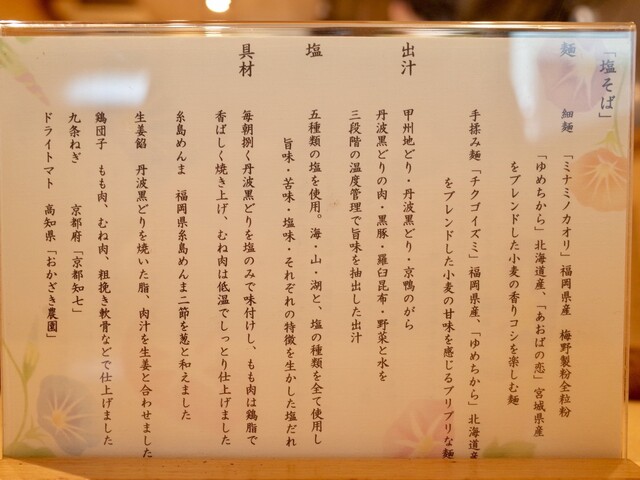 「塩そば」
麺　細麺　「ミナミノカオリ」福岡県産　梅野製粉全粒粉
「ゆめちから」北海道産、「あおばの恋」宮城県産
をブレンドした小麦の香りコシを楽しむ麺
手揉み麺「チクゴイズミ」福岡県産、「ゆめちから」北海道産
をブレンドした小麦の甘味を感じるプリプリな麺
出汁　甲州地どり・丹波黒どり・京鴨のがら
丹波黒どりの肉・黒豚・羅臼昆布・野菜と水を
三段階の温度管理で旨味を抽出した出汁
塩　五種類の塩を使用。海・山・湖と、塩の種類を全て使用し
旨味・苦味・塩味・それぞれの特徴を生かした塩だれ
具材　毎朝捌く丹波黒どりを塩のみで味付けし、もも肉は鶏脂で
香ばしく焼き上げ、むね肉は低温でしっとり仕上げました
糸島めんま　福岡県糸島めんま二節を葱と和えました
生姜餡　丹波黒どりを焼いた脂、肉汁を生姜と合わせました
鶏団子　もも肉、むね肉、粗挽き軟骨などで仕上げました
九条ねぎ　京都府「京都知七」
ドライトマト　高知県「おかざき農園」